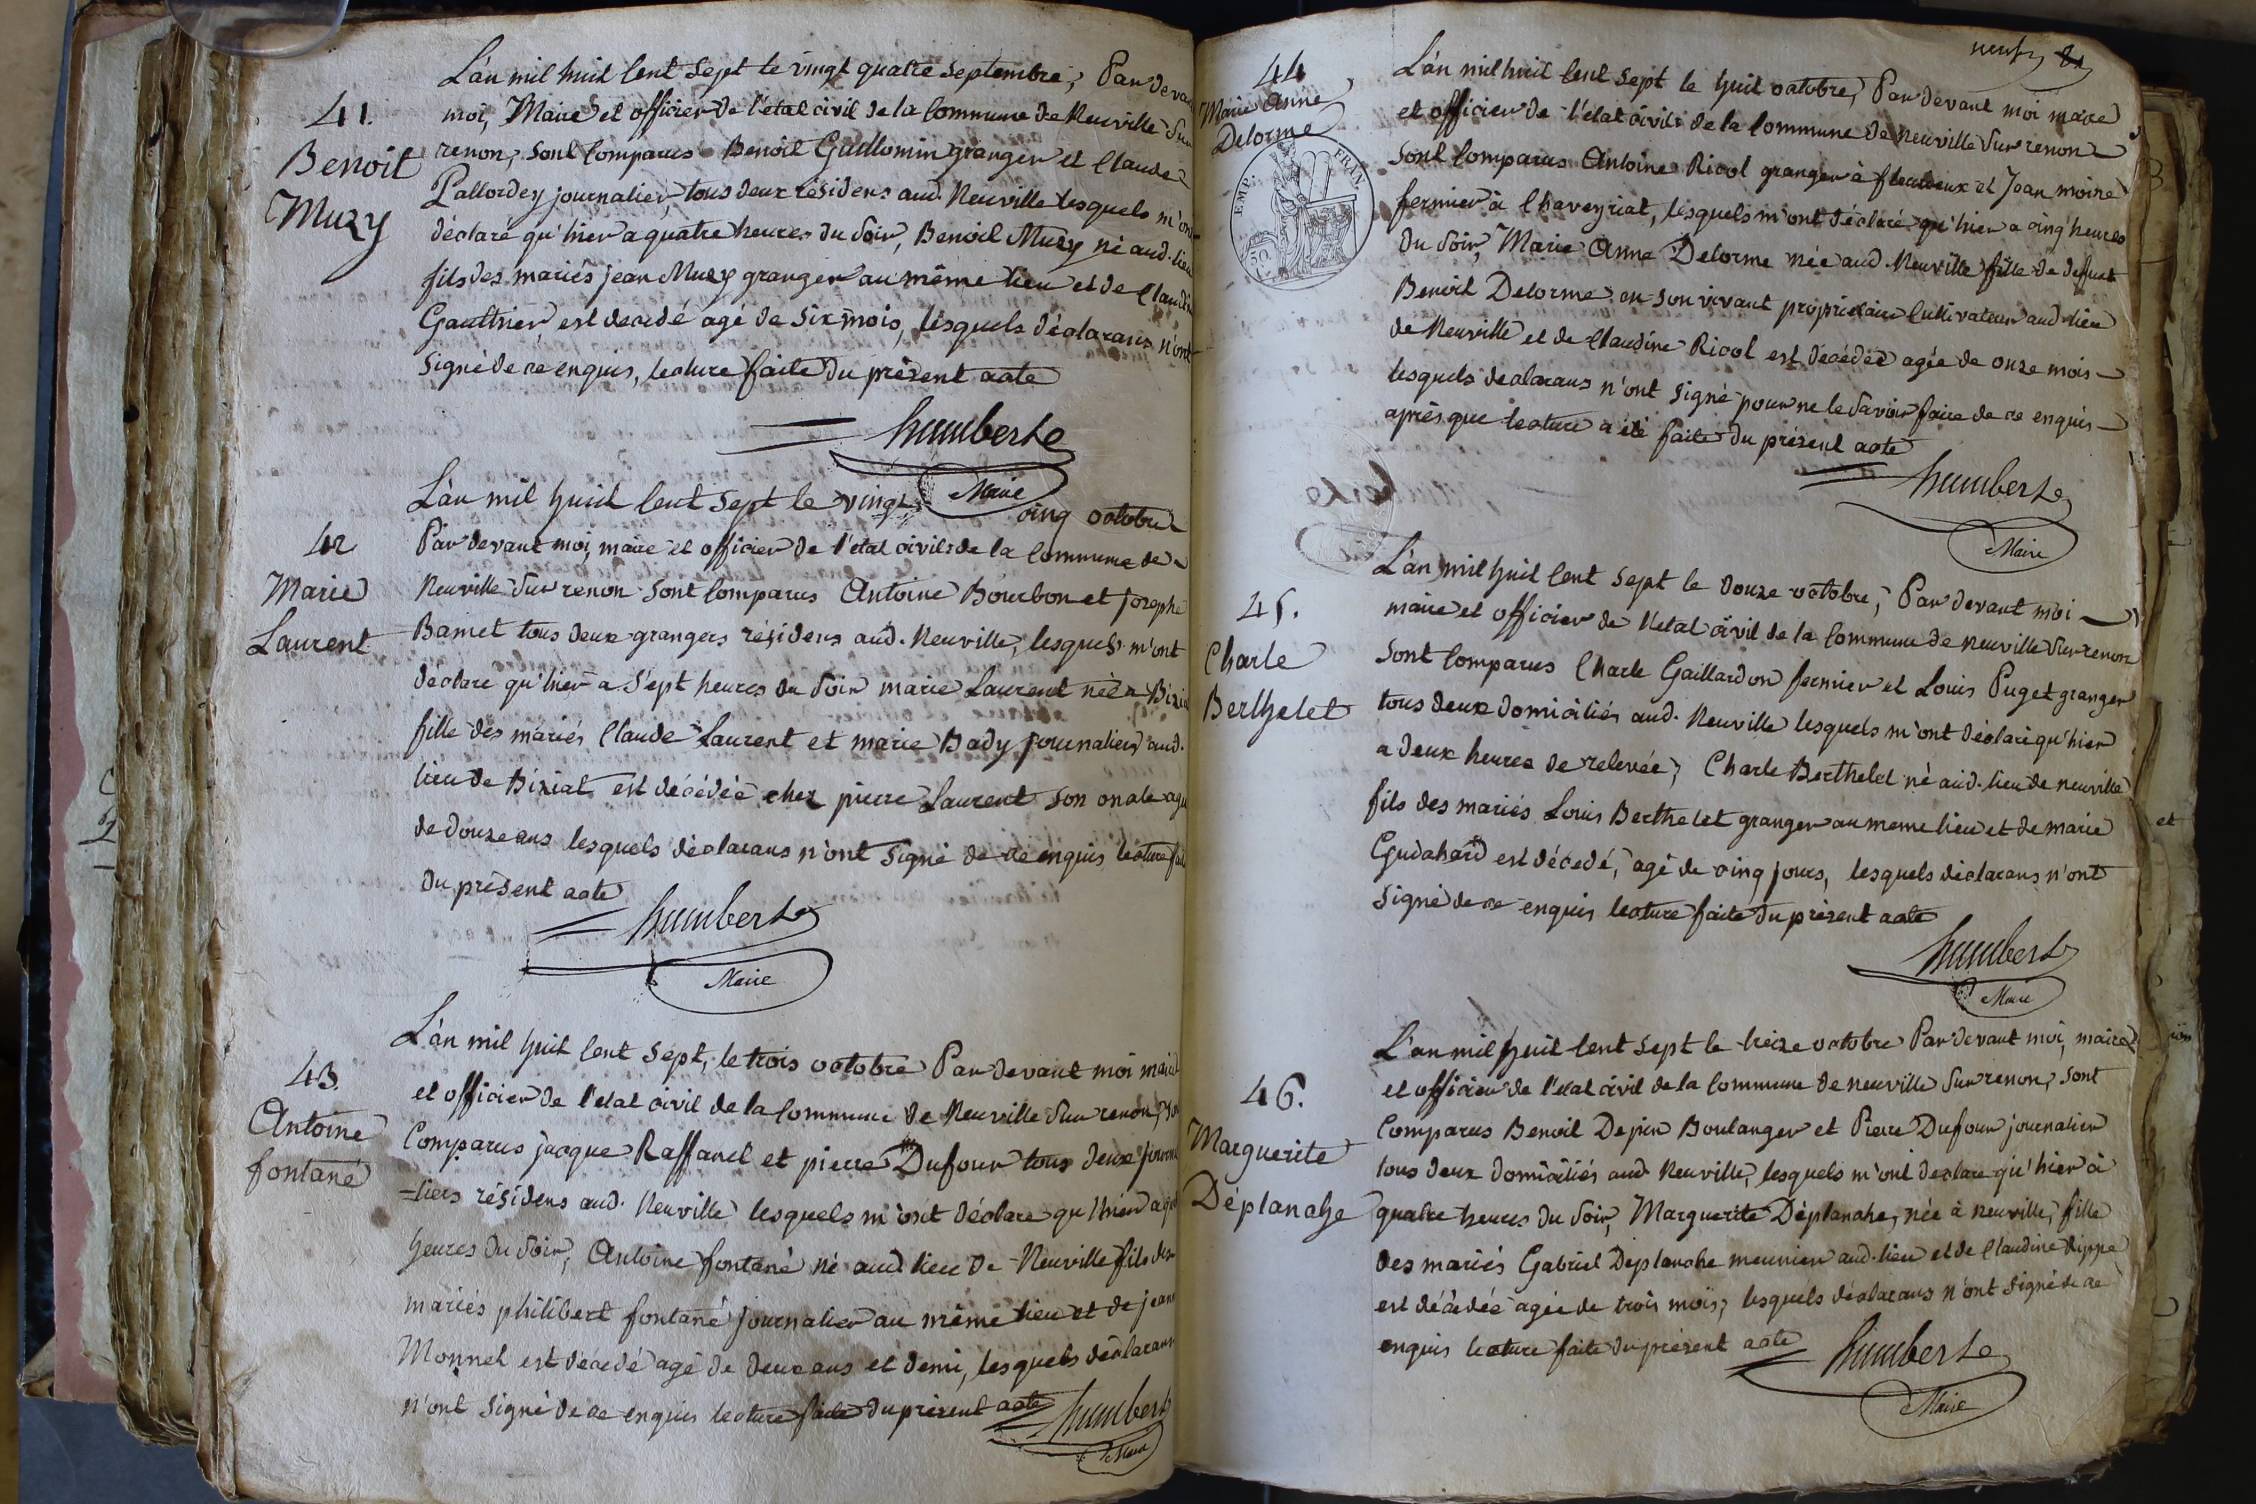 41.
Benoit
Muzy
L'an mil huit Cent Sept le vingt quatre Septembre, Par deva
moi, Maire et officier de l'etat civil de la Commune de Neuville Sur
renon, Sont Comparus Benoit Guillomin granger et Claude
Pallordey journalier, tous deux résidens aud. Neuville lesquels m'ont
déclaré qu'hier a quatre heures du Soir, Benoit Muzy né aud. lieu
fils des mariés jean Muzy granger au même lieu et de Claudi
Gauthier est decedé agé de Six mois, lesquels déclarans n'ont
Signé de ce enquis, lecture faite du présent acte
humbert
Maire
42
Marie
Laurent
L'an mil huit Cent Sept le vingt cinq octobre
Par devant moi, maire et officier de l'etat civil de la Commune de
Neuville Sur renon Sont Comparus Antoine Bourbon et josephe
Bamet tous deux grangers résidens aud. Neuville, lesquels m'ont
déclaré qu'hier a Sept heures du Soir marie Laurent née a Bizia
fille des mariés Claude Laurent et marie Bady journaliers aud.
lieu de Biziat est décédée chez pierre Laurent Son oncle agé
de douze ans lesquels déclarans n'ont Signé de ce enquis lecture fai
du présent acte
humbert
Maire
43.
Antoine
fontané
L'an mil huit Cent Sept, le trois octobre Par devant moi maire
et officier de l'etat civil de la Commune de Neuville Sur renon, So
Comparus jacque Raffanel et pierre Dufour tous deux journa
=liers résidens aud. Neuville lesquels m'ont déclaré qu'hier a qua
heures du Soir, Antoine fontané né aud. lieu de Neuville fils des
mariés philibert fontané journalier au même lieu et de jeanne
Monnel est décedé agé de deux ans et demi, lesquels déclarans
n'ont Signé de ce enquis lecture faite du présent acte
humbert
Maire
neuf
44
Marie Anne
Delorme
EMP. FRAN.
50 C.
L'an mil huit Cent Sept le huit octobre, Par devant moi maire
et officier de l'etat civil de la Commune de Neuville Sur renon
Sont Comparus Antoine Ricol granger à fleurieux et Jean moine
fermier à Chaveyriat, lesquels m'ont déclaré qu'hier a cinq heures
du Soir, Marie Anne Delorme née aud. Neuville fille de defunt
Benoit Delorme en Son vivant propriétaire Cultivateur aud. lieu
de Neuville et de Claudine Ricol est décédée agée de onze mois
lesquels declarans n'ont Signé pour ne le Savoir faire de ce enquis
après que lecture a été faite du présent acte
humbert
Maire
45.
Charle
Berthelet
L'an mil huit Cent Sept le douze octobre, Par devant moi
maire et officier de l'etat civil de la Commune de neuville Sur renon
Sont Comparus Charle Gaillardon fermier et Louis Puget granger
tous deux domiciliés aud. Neuville lesquels m'ont déclaré qu'hier
a deux heures de relevée, Charle Berthelet né aud. lieu de neuville
fils des mariés Louis Berthelet granger au meme lieu et de marie
Guichard est décedé, agé de cinq jours, lesquels déclarans n'ont
Signé de ce enquis lecture faite du présent acte
humbert
Maire
46.
Marguerite
Déplanche
L'an mil huit Cent Sept le treize octobre Par devant moi, maire
et officier de l'etat civil de la Commune de neuville Sur renon, Sont
Comparus Benoit Depin Boulanger et Pierre Dufour journalier
tous deux domiciliés aud. Neuville, lesquels m'ont declaré qu'hier à
quatre heures du Soir, Marguerite Déplanche, née à neuville, fille
des mariés Gabriel Deplanche meunier aud. lieu et de Claudine Rippe
est décédée agée de trois mois, lesquels déclarans n'ont Signé de ce
enquis lecture faite du présent acte
humbert
Maire